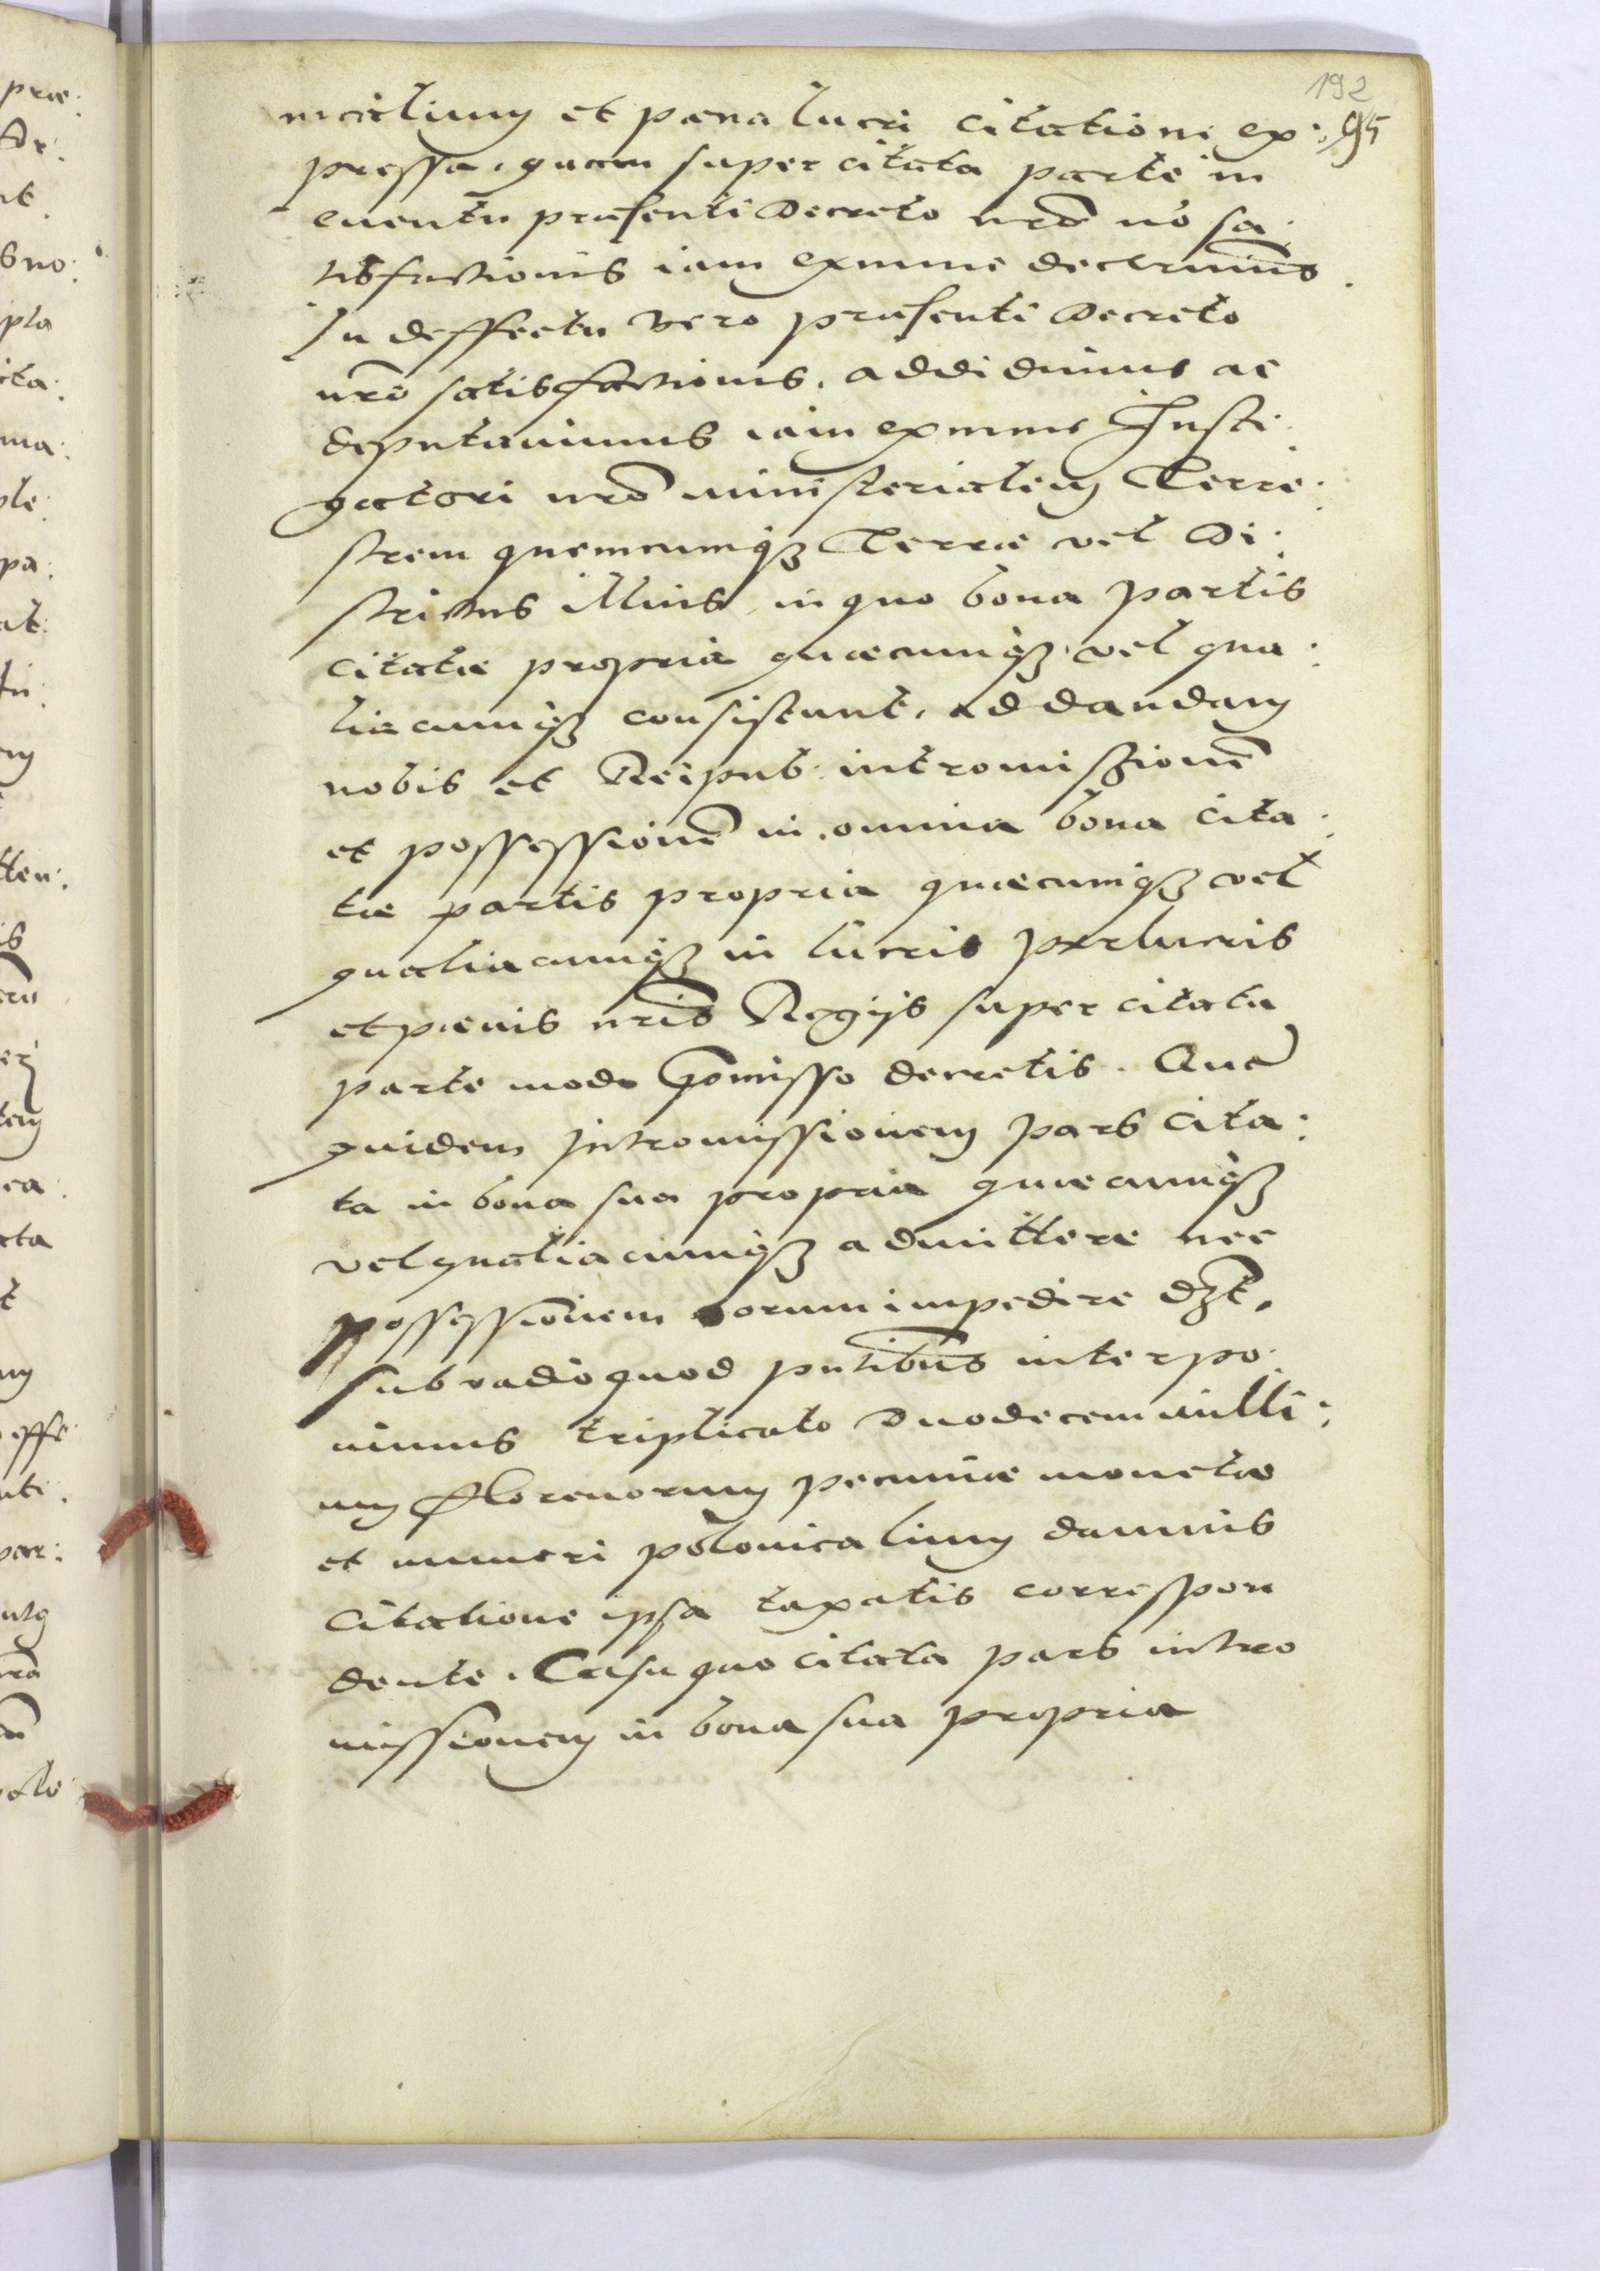 192
nicalium et pæna lucri citatione ex: 95
pressa. quam super citata parte in
euentu præsenti Decreto nrõ nõ sa:
tisfactionis iam exnunc declaramus.
In deffectu vero præsenti Decreto
nrõ satisfactionis. addidimus ac
deputauimus iam exnunc Insti:
gatori nrõ ministerialem Terre:
strem quemcumqȝ Terræ vel Di:
strictus illius in quo bona partis
citatæ propria quæcunqȝ vel qua:
liacunqȝ consistunt. ad dandam
nobis et Reipub: intromissionẽ
et possessionẽ in omnia bona cita:
tæ partis propria quæcunqȝ vel
qualiacunqȝ in lucris perlucris
et pænis nrĩs Regijs super citata
parte modo præmisso decretis. Quã
quidem intromissionem pars cita:
ta in bona sua propria quæcunqȝ
vel qualiacunqȝ admittere nec
possessionem eorum impedire dȝt,
sub vadio quod pntibus interpo:
nimus triplicato Duodecem milli:
um florenorum pecuniæ monetæ
et numeri polonicalium damnis
citatione ipsa taxatis correspon
dente. Casu quo citata pars intro
missionem in bona sua propria